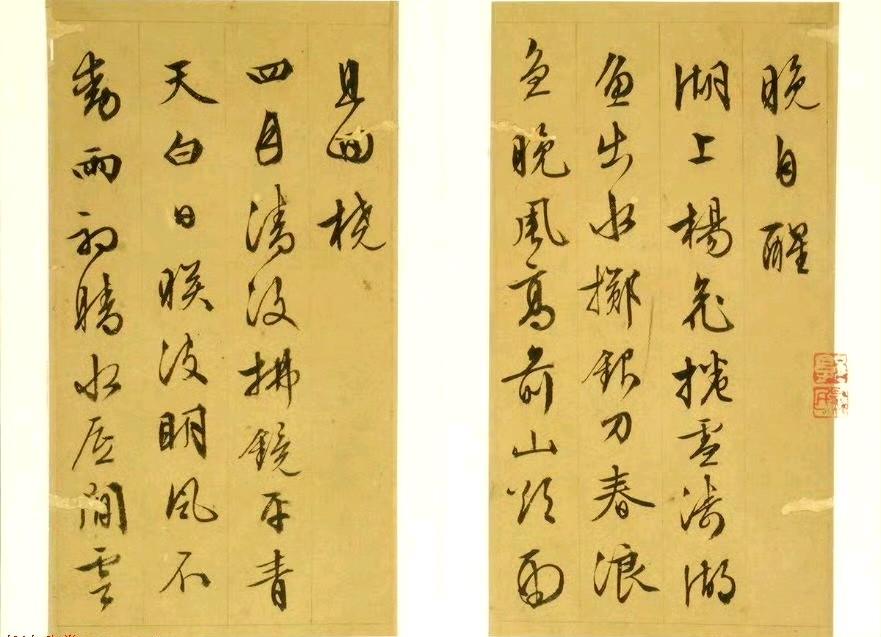 晚自醒
湖上楊花捲雪濤湖
魚出水擲銀刀春浪
急晚風高前山欲雨
且回橈
四月清波拂鏡平青
天白日映波明風不
動雨初晴水底閒雲